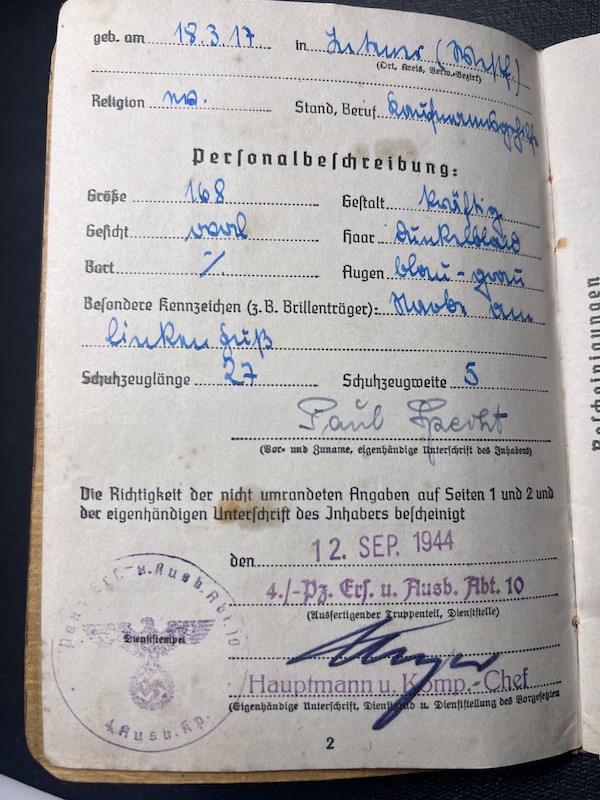 geb. am 18.3.17 in (Westf)
(Ort, Kreis, Verw.-Bezirk)
Religion Stand, Beruf Kaufmannsgehilfe
Personalbeschreibung:
Größe 168 Gestalt kräftig
Gesicht oval Haar dunkelblond
Bart ⁒ Augen blau-grau
Besondere Kennzeichen (z.B. Brillenträger): Narbe am
linken Fuß
Schuhzeuglänge 27 Schuhzeugweite 5
Paul Specht
(Vor- und Zuname, eigenhändige Unterschrift des Inhabers)
Die Richtigkeit der nicht umrandeten Angaben auf Seiten 1 und 2 und
der eigenhändigen Unterschrift des Inhabers bescheinigt
den 12. SEP. 1944
4./-Pz. Ers. u. Ausb. Abt. 10
(Ausfertigender Truppenteil, Dienststelle)
Dienststempel
Hauptmann u. Komp.-Chef
(Eigenhändige Unterschrift, Dienstgrad u. Dienststellung des Vorgesetzten
2
Panz. Ers.- u. Ausb. Abt. 10
4. Ausb. Kp.
Bescheinigungen